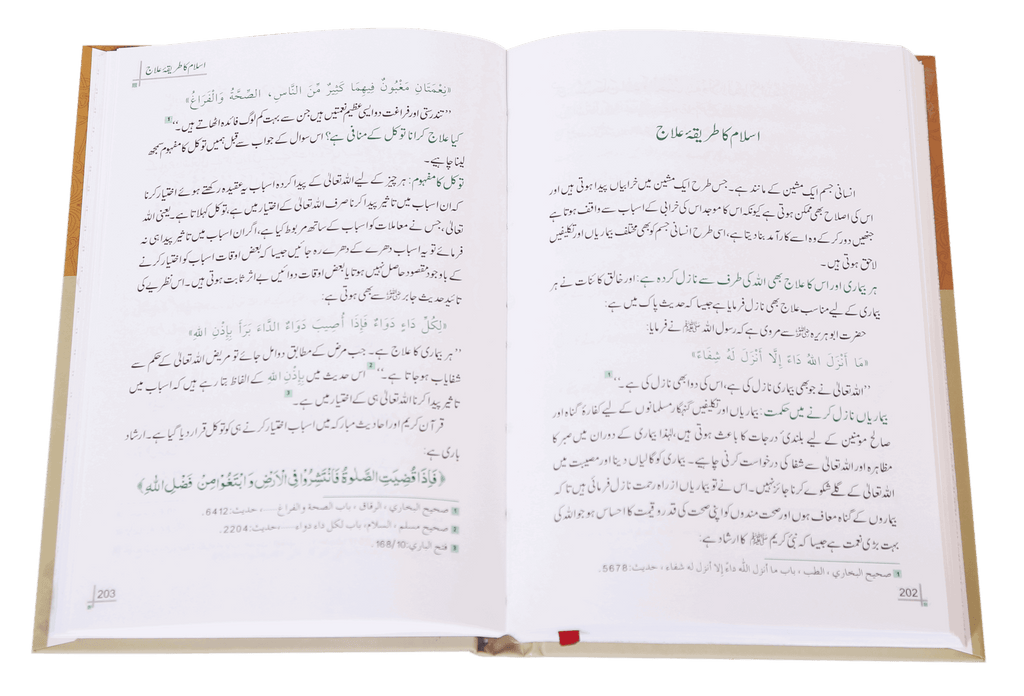 اسلام کا طریقۂ علاج
انسانی جسم ایک مشین کے مانند ہے۔ جس طرح ایک مشین میں خرابیاں پیدا ہوتی ہیں اور
اس کی اصلاح بھی ممکن ہوتی ہے کیونکہ اس کا موجد اس کی خرابی کے اسباب سے واقف ہوتا ہے
جنھیں دور کر کے وہ اسے کارآمد بنا دیتا ہے، اسی طرح انسانی جسم کو بھی مختلف بیماریاں اور تکلیفیں
لاحق ہوتی ہیں۔
ہر بیماری اور اس کا علاج بھی اللہ کی طرف سے نازل کردہ ہے: اور خالق کائنات نے ہر
بیماری کے لیے مناسب علاج بھی نازل فرمایا ہے جیسا کہ حدیث پاک میں ہے:
حضرت ابوہریرہ رضی اللہ عنہ سے مروی ہے کہ رسول اللہ ﷺ نے فرمایا:
«مَا أَنْزَلَ اللهُ دَاءً إِلَّا أَنْزَلَ لَهُ شِفَاءً»
’’اللہ تعالیٰ نے جو بھی بیماری نازل کی ہے، اس کی دوا بھی نازل کی ہے۔‘‘ 1
بیماریاں نازل کرنے میں حکمت: بیماریاں اور تکلیفیں گنہگار مسلمانوں کے لیے کفارۂ گناہ اور
صالح مومنین کے لیے بلندیٔ درجات کا باعث ہوتی ہیں، لہٰذا بیماری کے دوران میں صبر کا
مظاہرہ اور اللہ تعالیٰ سے شفا کی درخواست کرنی چاہیے۔ بیماری کو گالیاں دینا اور مصیبت میں
اللہ تعالیٰ کے گلے شکوے کرنا جائز نہیں۔ اس نے تو بیماریاں از راہ رحمت نازل فرمائی ہیں تاکہ
بیماروں کے گناہ معاف ہوں اور صحت مندوں کو اپنی صحت کی قدر و قیمت کا احساس ہو جو اللہ کی
بہت بڑی نعمت ہے جیسا کہ نبی کریم ﷺ کا ارشاد ہے:
1 صحيح البخاري، الطب، باب ما أنزل الله داءً إلا أنزل له شفاء، حديث:5678.
202
اسلام کا طریقۂ علاج
«نِعْمَتَانِ مَغْبُونٌ فِيهِمَا كَثِيرٌ مِّنَ النَّاسِ، الصِّحَّةُ وَالْفَرَاغُ»
’’تندرستی اور فراغت دو ایسی عظیم نعمتیں ہیں جن سے بہت کم لوگ فائدہ اٹھاتے ہیں۔‘‘ 1
کیا علاج کرانا توکل کے منافی ہے؟ اس سوال کے جواب سے قبل ہمیں توکل کا مفہوم سمجھ
لینا چاہیے۔
توکل کا مفہوم: ہر چیز کے لیے اللہ تعالیٰ کے پیدا کردہ اسباب یہ عقیدہ رکھتے ہوئے اختیار کرنا
کہ ان اسباب میں تاثیر پیدا کرنا صرف اللہ تعالیٰ کے اختیار میں ہے، توکل کہلاتا ہے۔ یعنی اللہ
تعالیٰ، جس نے معاملات کو اسباب کے ساتھ مربوط کیا ہے، اگر ان اسباب میں تاثیر پیدا ہی نہ
فرمائے تو یہ اسباب دھرے کے دھرے رہ جائیں جیسا کہ بعض اوقات اسباب کو اختیار کرنے
کے باوجود مقصود حاصل نہیں ہوتا یا بعض اوقات دوائیں بے اثر ثابت ہوتی ہیں۔ اس نظریے کی
تائید حدیث جابر رضی اللہ عنہ سے بھی ہوتی ہے:
«لِكُلِّ دَاءٍ دَوَاءٌ فَإِذَا أُصِيبَ دَوَاءُ الدَّاءِ بَرَأَ بِإِذْنِ اللهِ»
’’ہر بیماری کا علاج ہے۔ جب مرض کے مطابق دوا مل جائے تو مریض اللہ تعالیٰ کے حکم سے
شفایاب ہو جاتا ہے۔‘‘ 2 اس حدیث میں بِإِذْنِ اللهِ کے الفاظ بتا رہے ہیں کہ اسباب میں
تاثیر پیدا کرنا اللہ تعالیٰ ہی کے اختیار میں ہے۔ 3
قرآن کریم اور احادیث مبارکہ میں اسباب اختیار کرنے ہی کو توکل قرار دیا گیا ہے۔ ارشاد
باری ہے:
﴿فَإِذَا قُضِيَتِ الصَّلٰوةُ فَانْتَشِرُوْا فِي الْاَرْضِ وَابْتَغُوْا مِنْ فَضْلِ اللّٰهِ﴾
1 صحيح البخاري، الرقاق، باب الصحة والفراغ......، حديث:6412.
2 صحيح مسلم، السلام، باب لكل داء دواء......، حديث:2204.
3 فتح الباري:168/10.
203